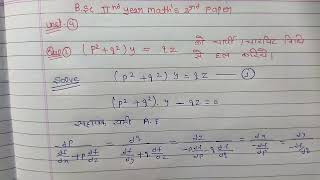 B.Sc IInd year math's 2nd paper
Unit. 4
Que① (p²+q²)y = qz को चार्पी/चारपिट विधि
से हल करिये।
Solve (p²+q²) y = qz — ①
(p²+q²). y - qz = 0
सहायक चार्पी A.E
dp/(df/dx + p df/dz) = dq/(df/dy + q df/dz) = dz/(-p df/dp - q df/dq) = dx/(-df/dp) = dy/(-df/dq)